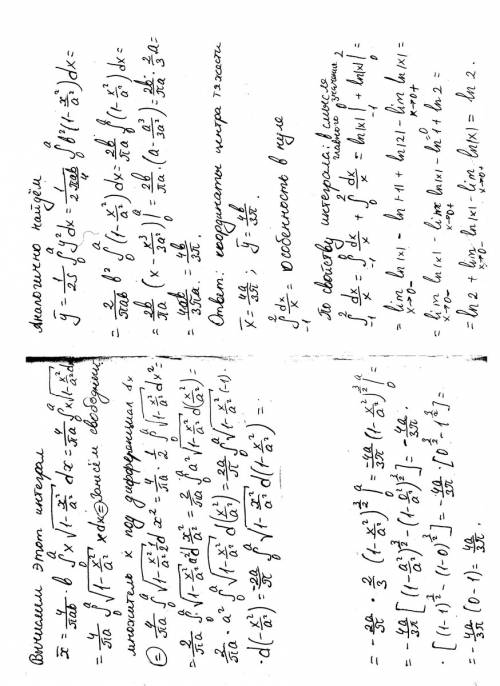 Вычислим этот интеграл
x̄ = 4/(πab) · b ∫₀ᵃ x √(1 - x²/a²) dx = 4/(πa) ∫₀ᵃ x √(1 - x²/a²) dx
= 4/(πa) ∫₀ᵃ √(1 - x²/a²) x dx = Занесём свободный
множитель x под дифференциал dx
= 4/(πa) ∫₀ᵃ √(1 - x²/a²) 1/2 d x² = 4/(πa) · 1/2 ∫₀ᵃ √(1 - x²/a²) dx² =
= 2/(πa) ∫₀ᵃ √(1 - x²/a²) a² d x²/a² = 2/(πa) ∫₀ᵃ a² √(1 - x²/a²) d(x²/a²) =
2/(πa) · a² ∫₀ᵃ √(1 - x²/a²) d(x²/a²) = 2a/π ∫₀ᵃ √(1 - x²/a²) (-1) ·
· d(-x²/a²) = -2a/π ∫₀ᵃ √(1 - x²/a²) d(1 - x²/a²) =
= -2a/π · 2/3 (1 - x²/a²)^(3/2) |₀ᵃ = -4a/(3π) (1 - x²/a²)^(3/2) |₀ᵃ =
= -4a/(3π) [(1 - a²/a²)^(3/2) - (1 - 0²/a²)^(3/2)] = -4a/(3π) ·
· [(1-1)^(3/2) - (1-0)^(3/2)] = -4a/(3π) · [0^(3/2) - 1^(3/2)] =
= -4a/(3π) (0-1) = 4a/(3π)
Аналогично найдём
ȳ = 1/(2S) ∫₀ᵃ y² dx = 1/(2 πab/4) ∫₀ᵃ b² (1 - x²/a²) dx =
= 2/(πab) b² ∫₀ᵃ (1 - x²/a²) dx = 2b/(πa) ∫₀ᵃ (1 - x²/a²) dx =
= 2b/(πa) (x - x³/(3a²)) |₀ᵃ = 2b/(πa) · (a - a³/(3a²)) = 2b/(πa) · 2/3 a =
= 4ab/(3πa) = 4b/(3π).
Ответ: координаты центра тяжести
x̄ = 4a/(3π); ȳ = 4b/(3π).
∫₋₁² dx/x = особенность в нуле
По свойству интеграла: в смысле
главного значения
∫₋₁² dx/x = ∫₋₁⁰ dx/x + ∫₀² dx/x = ln|x| |₋₁⁰ + ln|x| |₀² =
= lim x→0- ln|x| - ln|-1| + ln|2| - lim x→0+ ln|x| =
= lim x→0- ln|x| - lim x→0+ ln|x| - ln1 + ln2 =
= ln2 + lim x→0- ln|x| - lim x→0+ ln|x| = ln2.